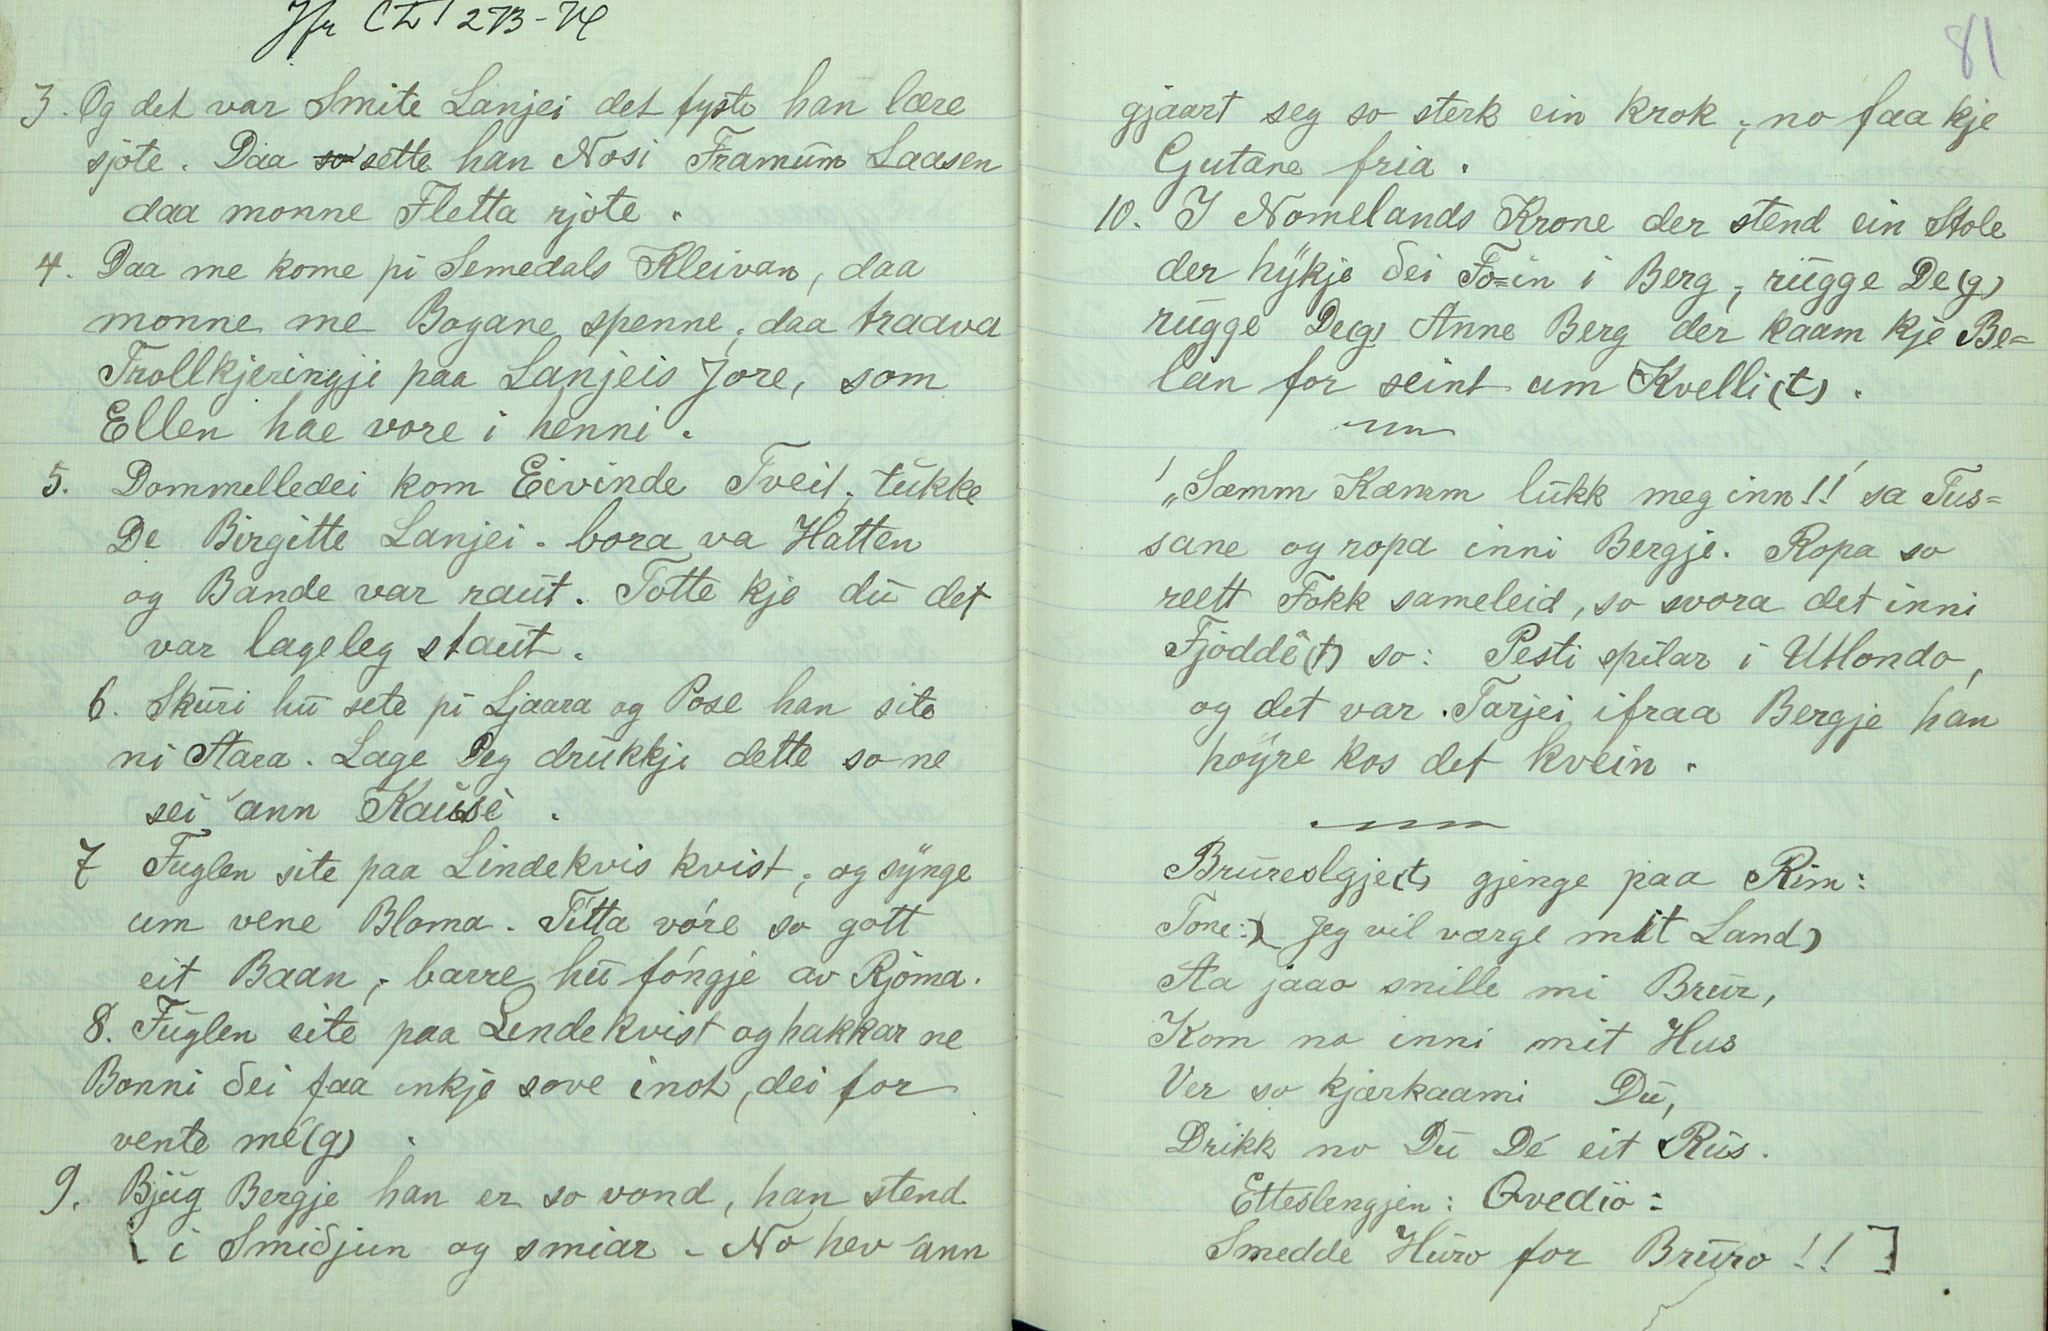 Jfr CLI 273-74
3. Og det var Smite Lanjei det fyste han lære
sjote. Daa so sette han Nosi Framūm Laasen
daa monne Fletta rjote.
4. Daa me kome pi Semedals Kleivan, daa
monne me Bogane spenne, daa traava
Trollkjeringji paa Lanjeis Jore, som
Ellen hae vore i henni.
5. Dommelledei kom Eivinde Tveit, tūkke
De Birgitte Lanjei. bora va Hatten
og Bande var raūt. Totte kje dū det
var lageleg staūt.
6. Skūri hū sete pi Ljaara og Pose han site
ni Aara. Lage Deg drūkkji dette so ne
sei ann Kaūsi.
7 Fūglen site paa Lindekvis kvist, og sÿnge
um vene Bloma. Titta vóre so gott
eit Baan, barre hū fóngje av Rjóma.
8. Fūglen site paa Lendekvist og hakkar ne
Bonni dei faa inkje sove inot, dei for
vente mé(g).
9. Bjūg Bergje han er so vond, han stend
i Smidjun og smiar - No hev ann
81
gjaart seg so sterk ein krok, no faa kje
Gutane fria.
10. I Nomelands Krone der stend ein Stole
der hÿkje dei Fo=in i Berg, rūgge De(g)
rūgge De(g) Anne Berg der kaam kje Be=
lan for seint um Kvelli(t).
"Sæmm Kæmm lūkk meg inn!! sa Tus=
sane og ropa inni Bergje. Ropa so
reett Fokk sameleid, so svora det inni
Fjodde(t) so: Pesti spilar i Utlondo,
og det var Tarjei ifraa Bergje han
höyre kos det kvein.
Brūreslgje(t) gjenge paa Rim:
Tone: Jeg vil værge mit Land)
Aa jaao snille mi Brūr,
Kom no inni mit Hus
Ver so kjærkaami Dū,
Drikk no Dū Dé eit Rūs.
Etteslengjen: Qvediö:
Smedde Hūro for Brūro!!]